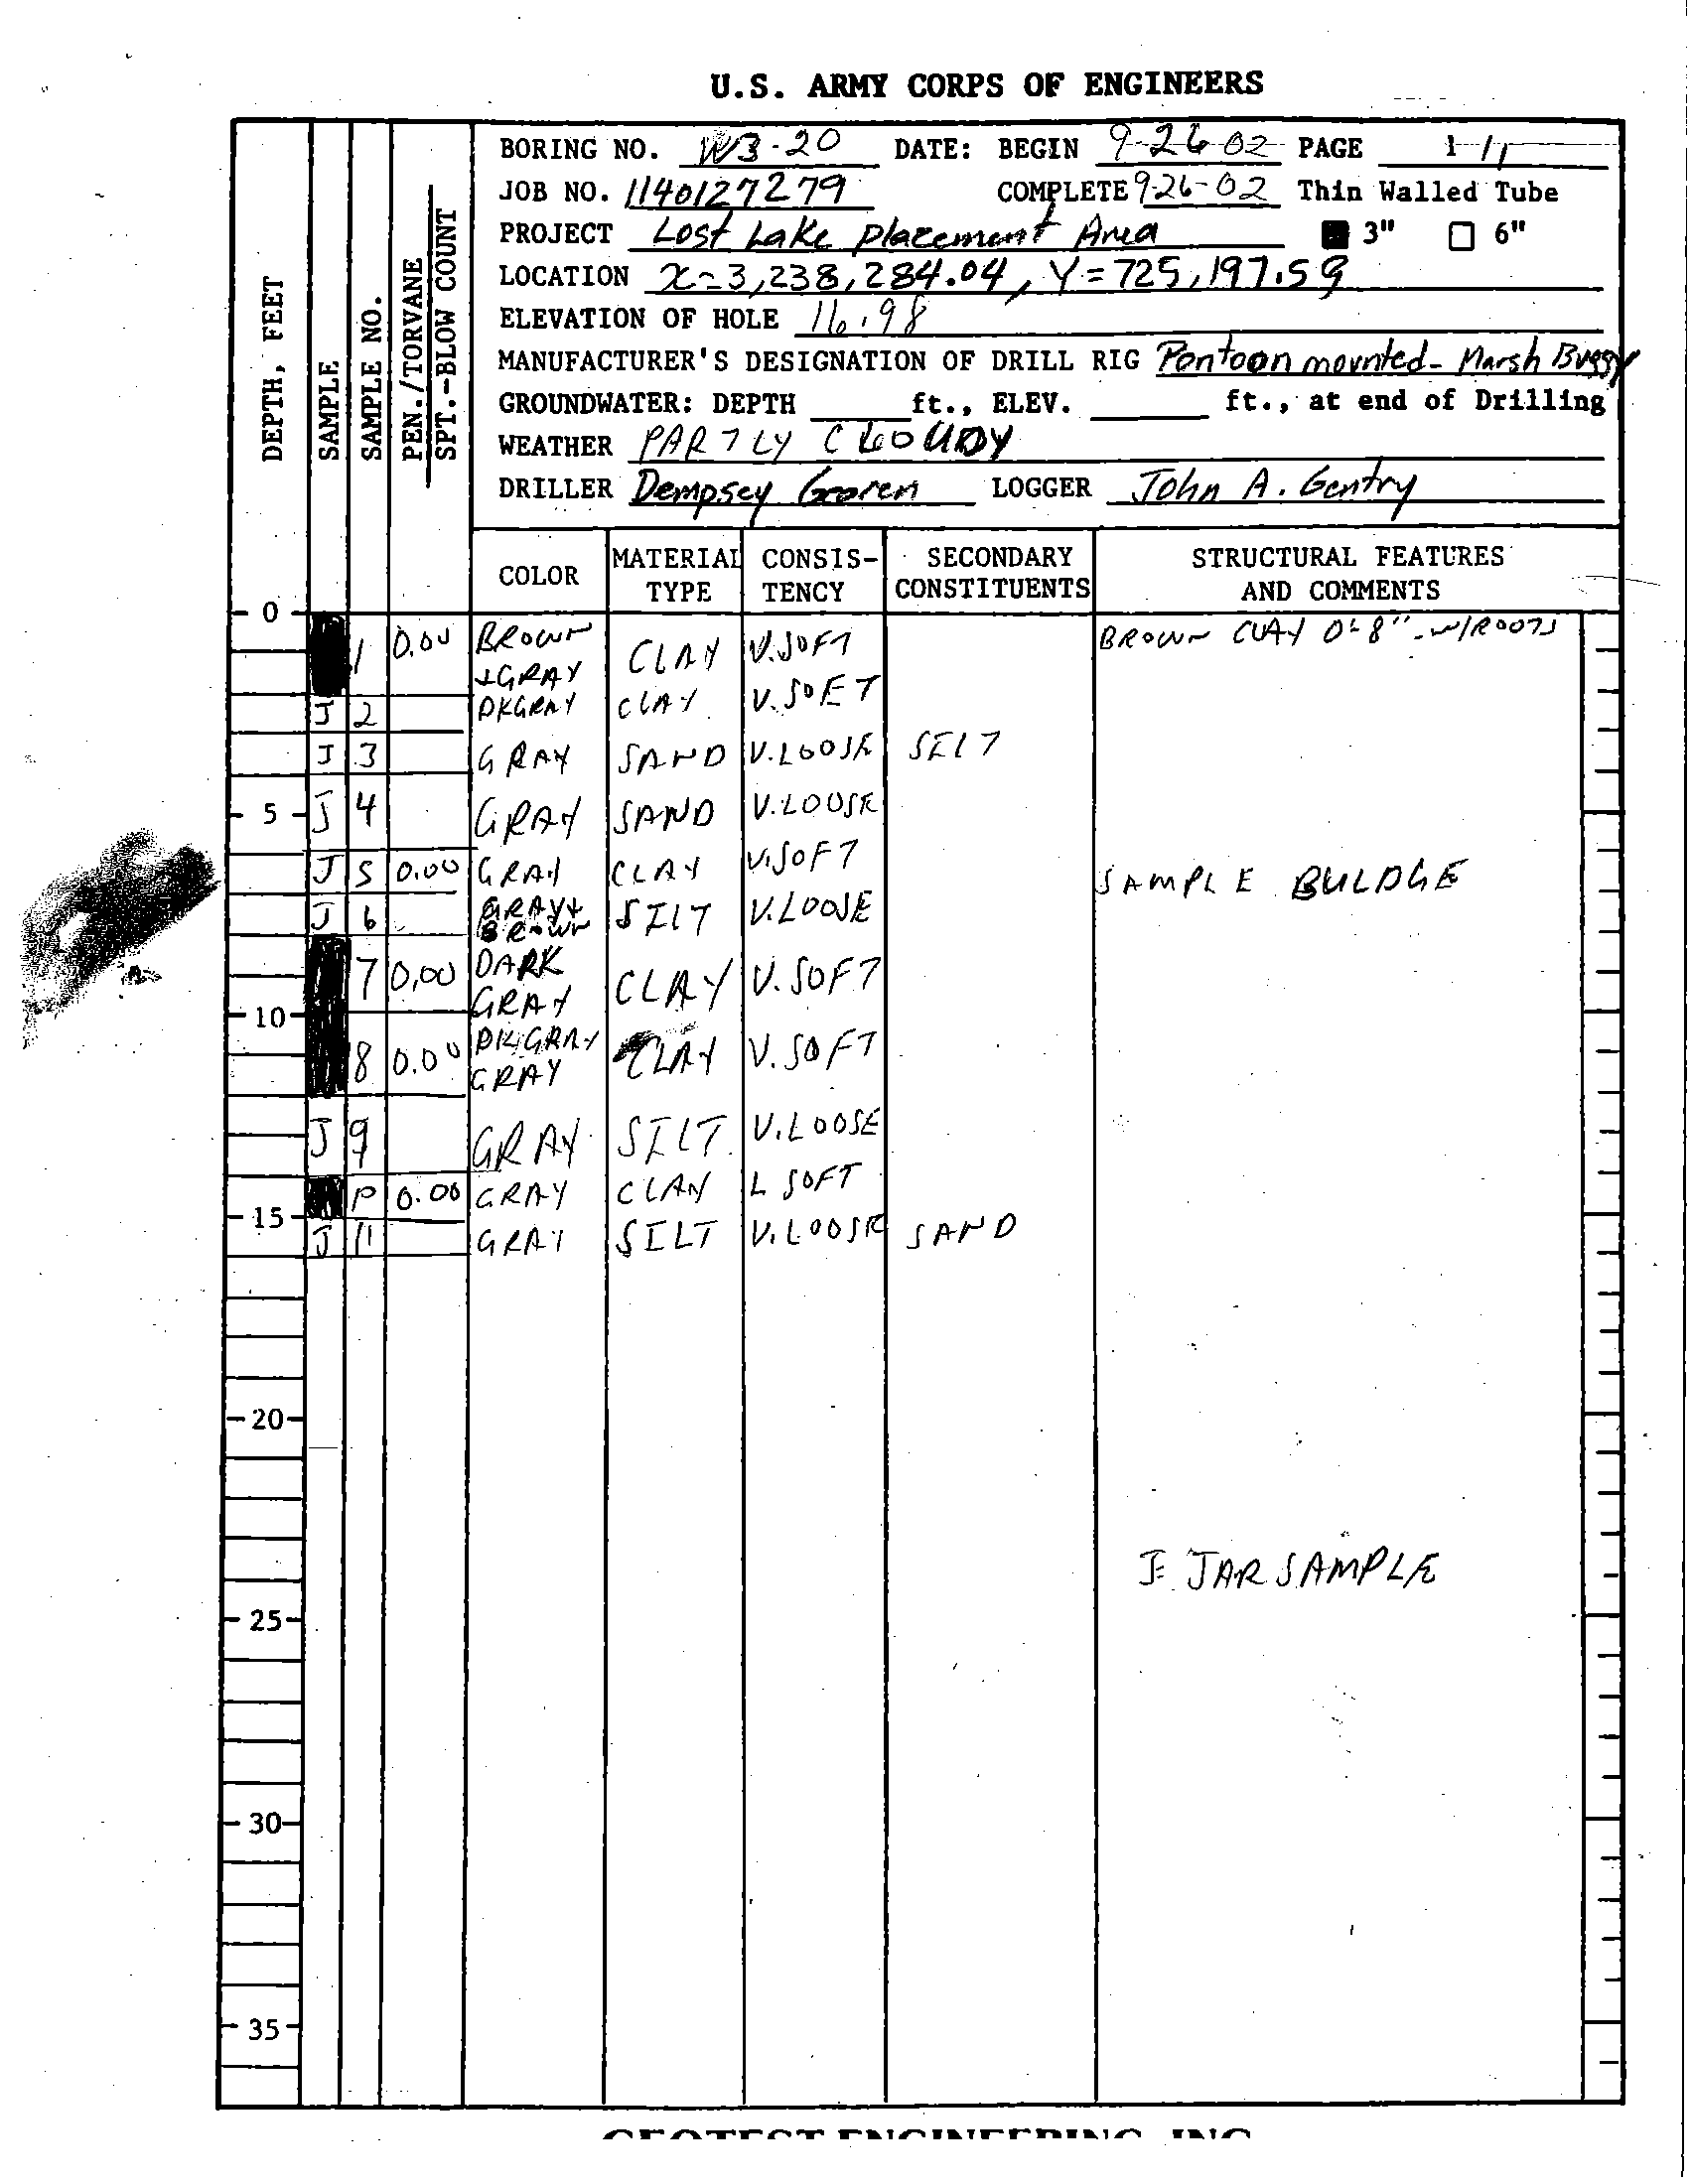 U.S. ARMY CORPS OF ENGINEERS
BORING NO. W3-20 DATE: BEGIN 9-26-02 PAGE 1/1
JOB NO. 1140127279 COMPLETE 9-26-02 Thin Walled Tube
PROJECT Lost Lake Placement Area 3" 6"
LOCATION X=3,238,284.04, Y=725,197.59
ELEVATION OF HOLE 16.98
MANUFACTURER'S DESIGNATION OF DRILL RIG Pontoon mounted - Marsh Buggy
GROUNDWATER: DEPTH ft., ELEV. ft., at end of Drilling
WEATHER PARTLY CLOUDY
DRILLER Dempsey LOGGER John A. Gentry
DEPTH, FEET
SAMPLE
SAMPLE NO.
PEN./TORVANE
SPT.-BLOW COUNT
COLOR MATERIAL TYPE CONSIS-TENCY SECONDARY CONSTITUENTS STRUCTURAL FEATURES AND COMMENTS
0
1 0.00 BROWN + GRAY CLAY V.SOFT BROWN CLAY 0-8" - W/ROOTS
J 2 DKGRAY CLAY V.SOFT
J 3 GRAY SAND V.LOOSE SILT
5 J 4 GRAY SAND V.LOOSE
J 5 0.00 GRAY CLAY V.SOFT SAMPLE BULDGE
J 6 GRAY + BROWN SILT V.LOOSE
7 0.00 DARK GRAY CLAY V.SOFT
10
8 0.00 DK.GRAY GRAY CLAY V.SOFT
J 9 GRAY SILT V.LOOSE
10 0.00 GRAY CLAY SOFT
15
J 11 GRAY SILT V.LOOSE SAND
20
J= JAR SAMPLE
25
30
35
GEOTEST ENGINEERING, INC